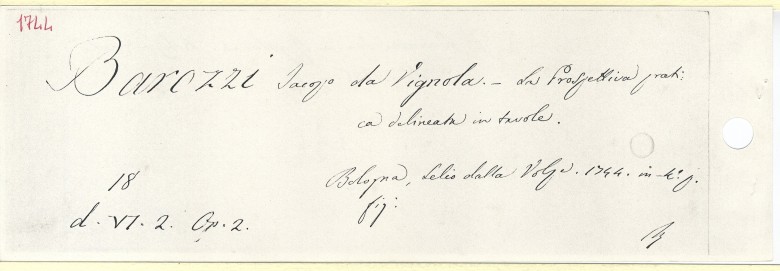 1744
Barozzi Jacopo da Vignola. – La Prospettiva prati:
ca delineata in tavole.
Bologna, Lelio dalla Volpe. 1744. in-4°.
fig:
18
d. VI. 2. Cp. 2.